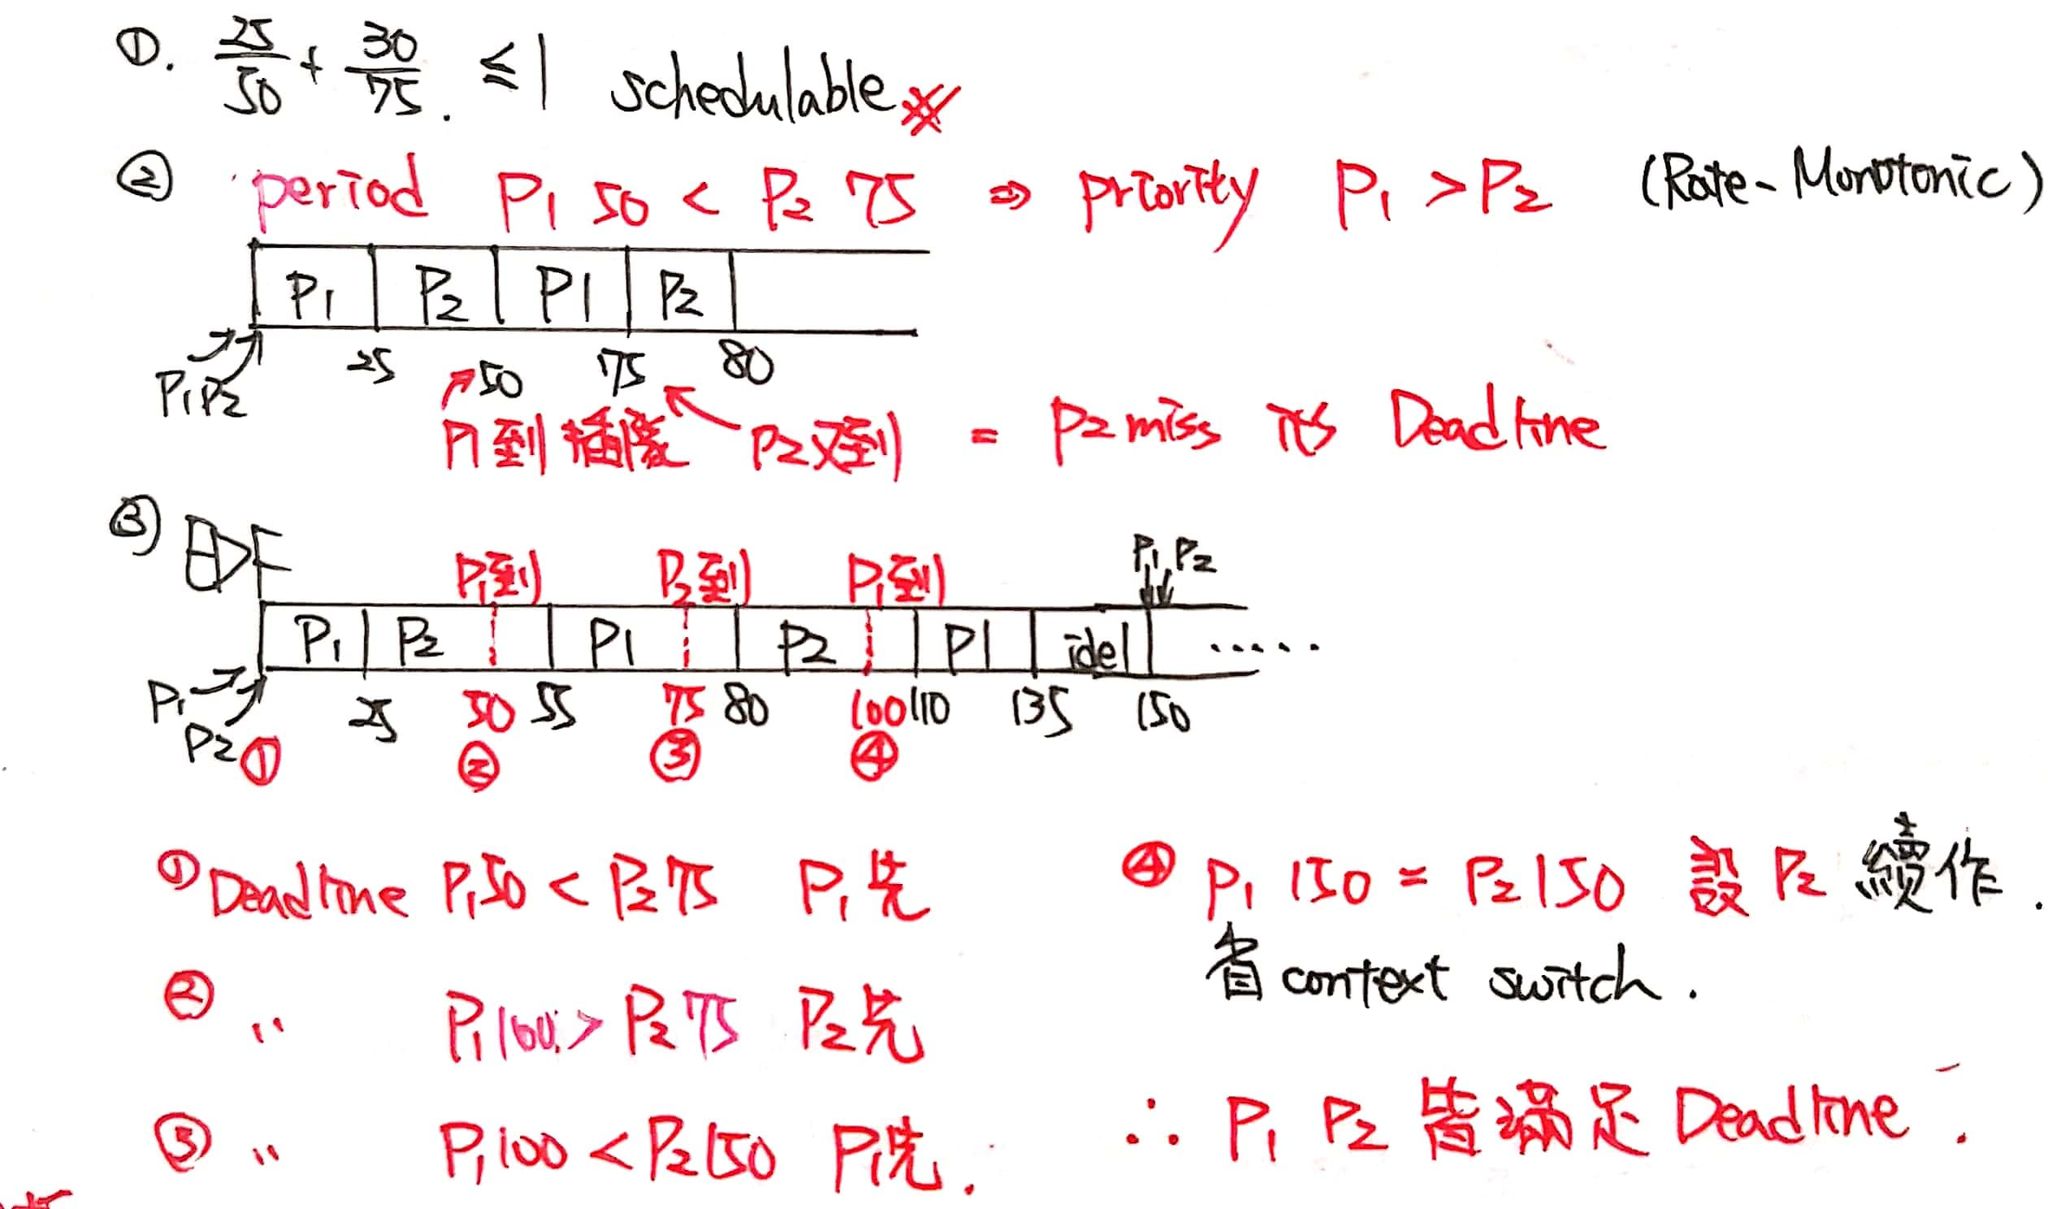 ①. 25/50 + 30/75. ≤ 1 schedulable ※
② period P1 50 < P2 75 ⇒ priority P1 > P2 (Rate-Monotonic)
P1 P2 P1 P2
P1 P2 25 50 75 80
P1到 插隊 P2又到 = P2 miss its Deadline
③ EDF
P1到 P2到 P1到 P1 P2
P1 P2 P1 P2 P1 idel ......
P1 25 50 55 75 80 100 110 135 150
P2 ① ② ③ ④
① Deadline P1 50 < P2 75 P1先
② 〃 P1 100 > P2 75 P2先
③ 〃 P1 100 < P2 150 P1先.
④ P1 150 = P2 150 設 P2 續作.
省 context switch.
∴ P1 P2 皆滿足 Deadline.